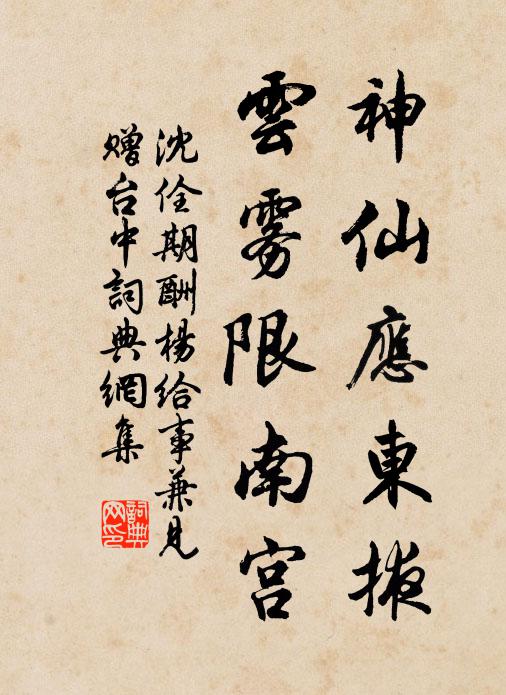 神仙應東掖
雲霧限南宮
沈佺期酬楊給事兼見
贈台中詞典網集
詞典网印